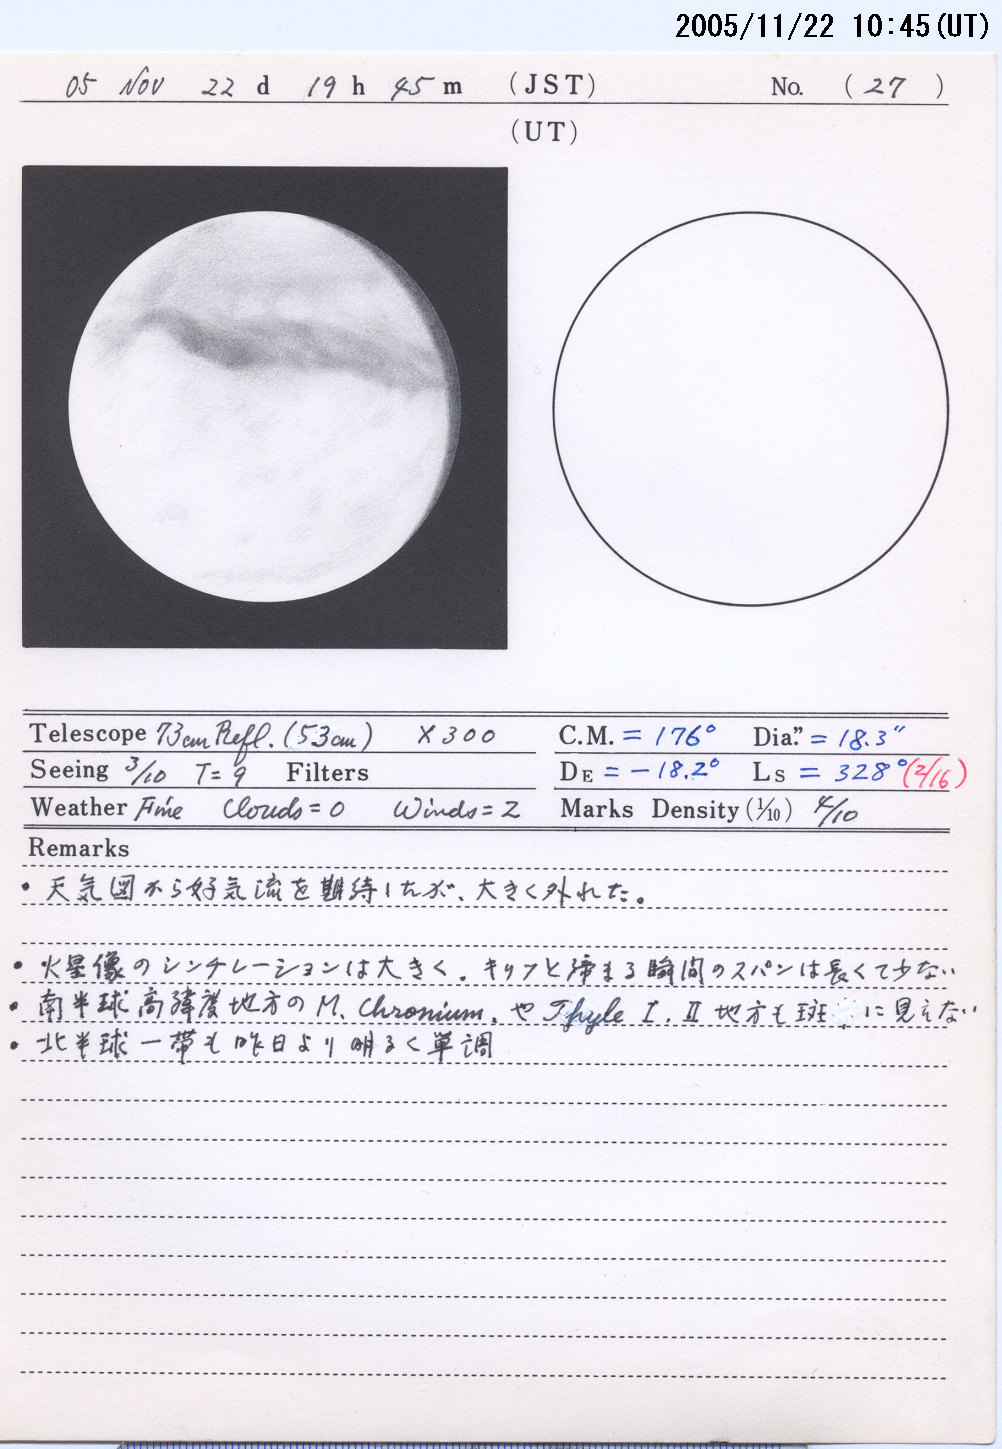 2005/11/22 10:45(UT)
05 Nov 22 d 19 h 45 m (JST) No. ( 27 )
(UT)
Telescope 73cm Refl. (53cm) ×300 C.M. = 176° Dia." = 18.3"
Seeing 3/10 T= 9 Filters DE = -18.2° Ls = 328° (2/16)
Weather Fine Clouds = 0 Winds = 2 Marks Density (1/10) 4/10
Remarks
• 天気図から好気流を期待したが、大きく外れた。
• 火星像のシンチレーションは大きく。キリッと締まる瞬間のスパンは長くて少ない
• 南半球高緯度地方のM. Chronium. や Thyle I. II 地方も斑に見えない
• 北半球一帯も昨日より明るく単調